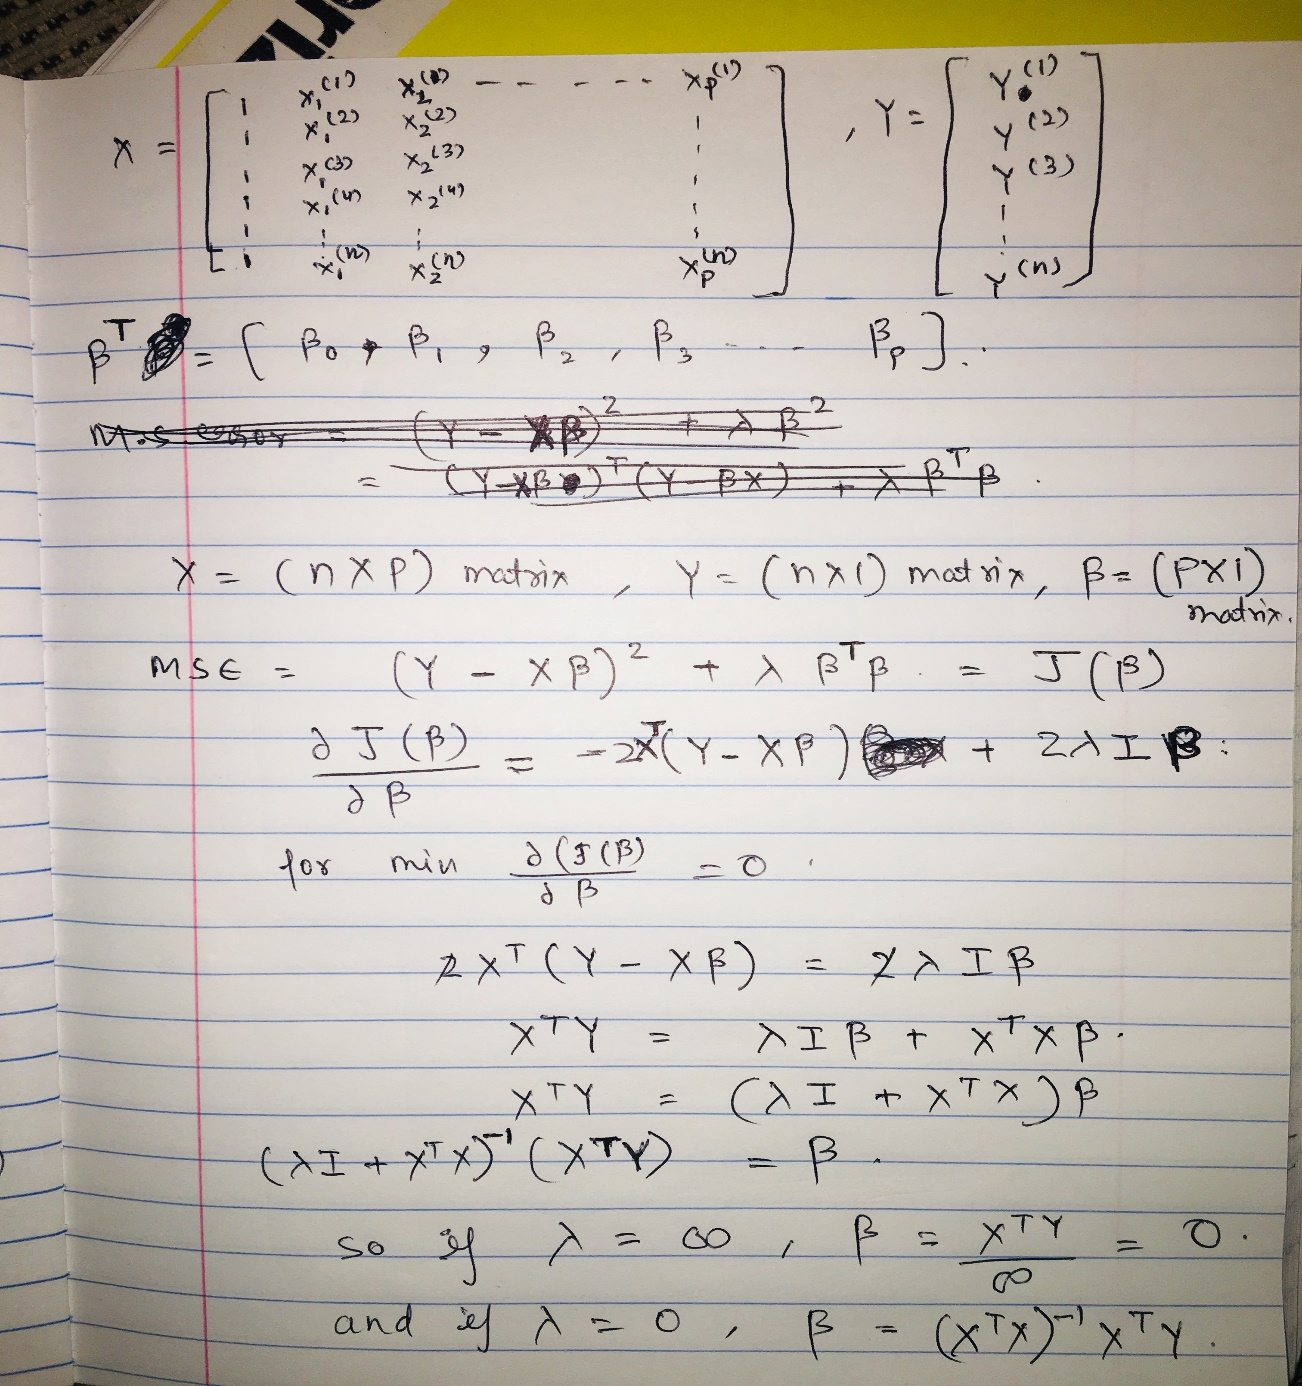 X = [ 1 x₁⁽¹⁾ x₂⁽¹⁾ - - - - - xₚ⁽¹⁾ ] , Y = [ Y⁽¹⁾
x₁⁽²⁾ x₂⁽²⁾ Y⁽²⁾
x₁⁽³⁾ x₂⁽³⁾ Y⁽³⁾
x₁⁽⁴⁾ x₂⁽⁴⁾
1 x₁⁽ⁿ⁾ x₂⁽ⁿ⁾ xₚ⁽ⁿ⁾ Y⁽ⁿ⁾ ]
βᵀ = [ β₀ , β₁ , β₂ , β₃ - - - βₚ ].
M.S error = (Y - Xβ)² + λβ²
= (Y - Xβ)ᵀ (Y - βX) + λ βᵀβ .
X = (n X P) matrix , Y = (n x 1) matrix, β = (P X 1) matrix.
MSE = (Y - Xβ)² + λ βᵀβ . = J(β)
∂J(β)/∂β = -2Xᵀ(Y - Xβ) + 2λIβ :
for min ∂(J(β)/∂β = 0 .
2Xᵀ(Y - Xβ) = 2λIβ
XᵀY = λIβ + XᵀXβ .
XᵀY = (λI + XᵀX)β
(λI + XᵀX)⁻¹ (XᵀY) = β .
so if λ = ∞ , β = XᵀY/∞ = 0 .
and if λ = 0 , β = (XᵀX)⁻¹ XᵀY .